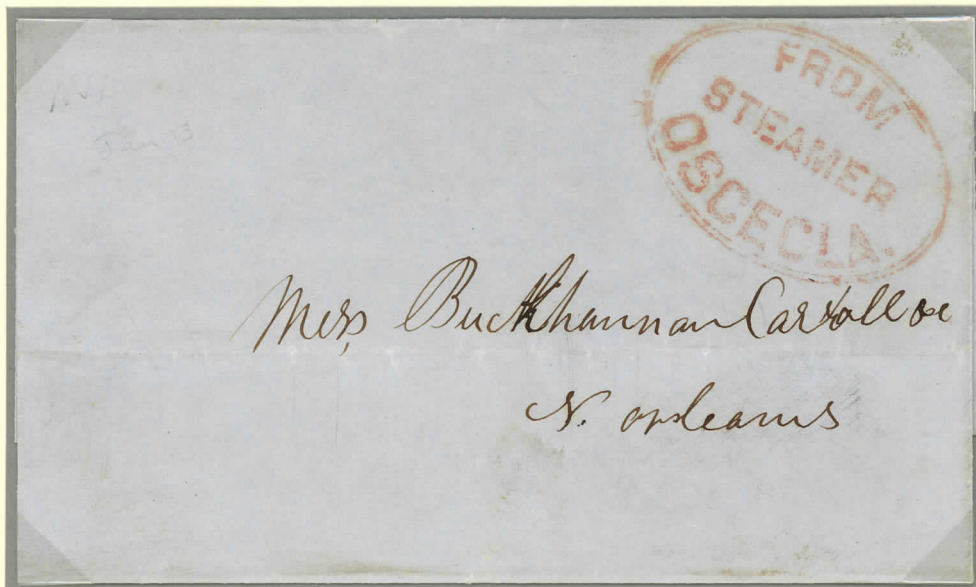 FROM
STEAMER
OSCECLA.
Mess Buckhannan Carroll &c
N. Orleans